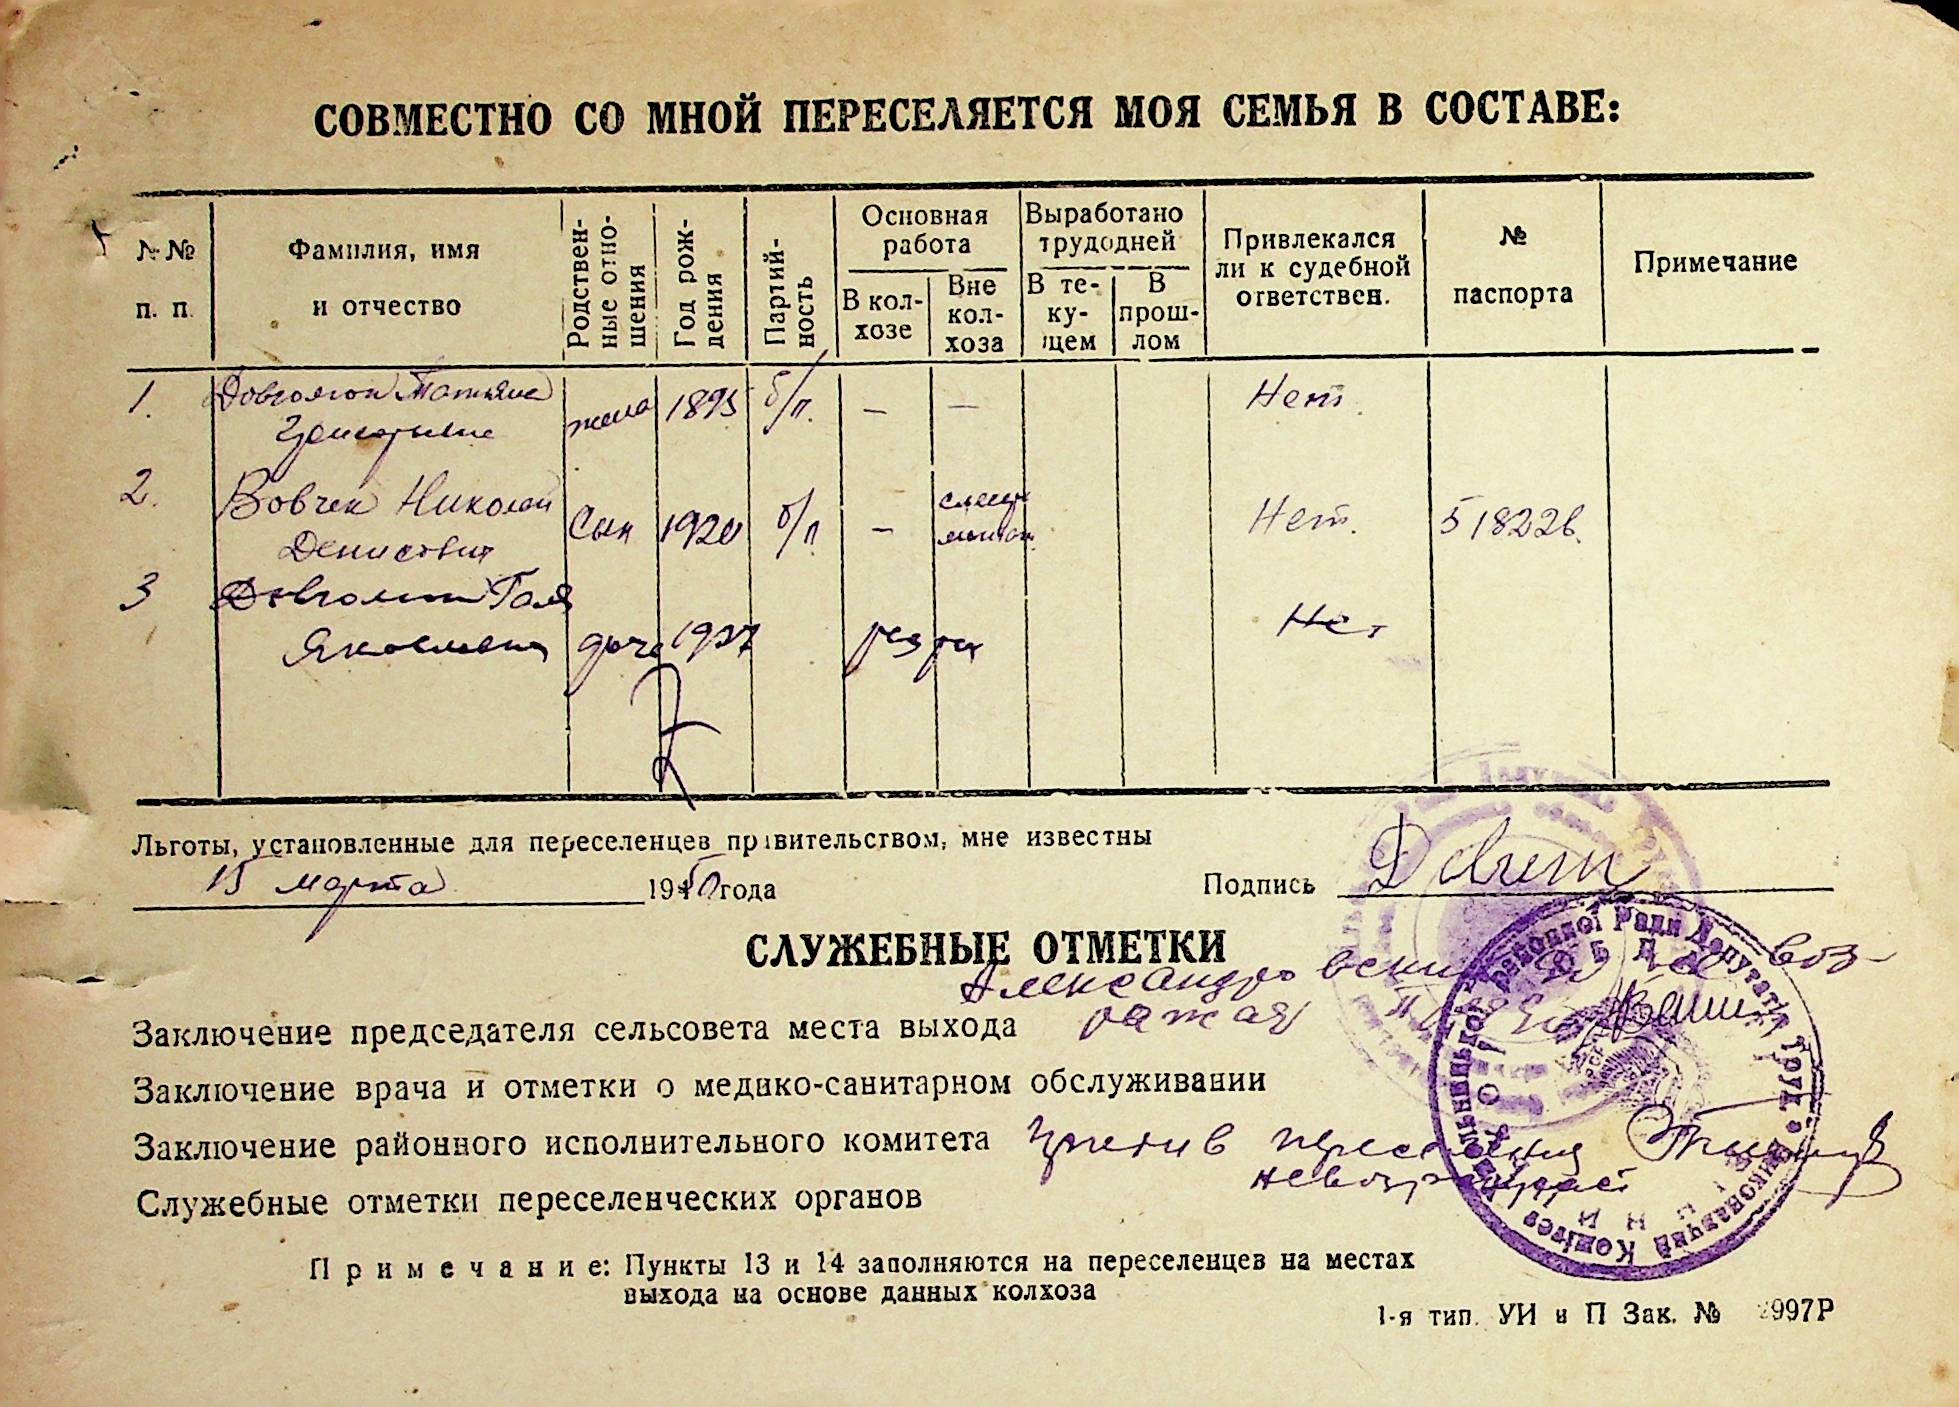 СОВМЕСТНО СО МНОЙ ПЕРЕСЕЛЯЕТСЯ МОЯ СЕМЬЯ В СОСТАВЕ:
№№ п. п.
Фамилия, имя и отчество
Родственные отношения
Год рождения
Партийность
Основная работа
В колхозе
Вне колхоза
Выработано трудодней
В текущем
В прошлом
Привлекался ли к судебной ответствен.
№ паспорта
Примечание
1. Татьяна жена 1895 б/п. — — Нет.
2. Вовчек Николай
Денисович Сын 1920 б/п — Нет. 518226.
3 Галя
Яковлевна дочь 1937 Нет
Льготы, установленные для переселенцев правительством, мне известны
15 марта 1950 года
Подпись
СЛУЖЕБНЫЕ ОТМЕТКИ
Александровский воз-
Заключение председателя сельсовета места выхода ражает
Заключение врача и отметки о медико-санитарном обслуживании
Заключение районного исполнительного комитета против переселения
невозражает
Служебные отметки переселенческих органов
Примечание: Пункты 13 и 14 заполняются на переселенцев на местах
выхода на основе данных колхоза
1-я тип. УИ и П Зак. № 2997Р
районної Ради Депутатів Труд. Виконавчий Комітет